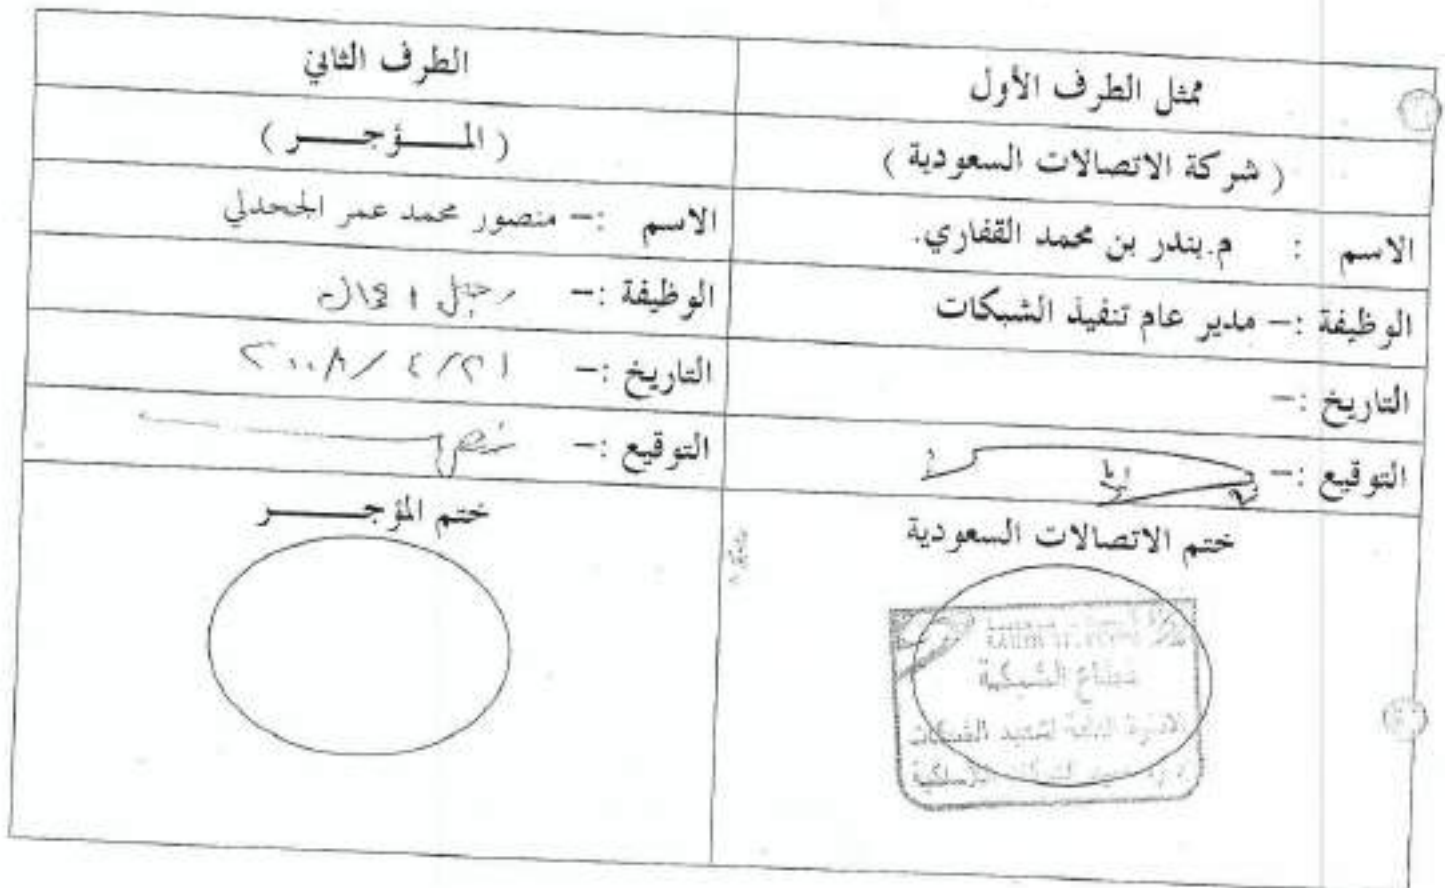 ممثل الطرف الأول
الطرف الثاني
( شركة الاتصالات السعودية )
( المـــؤجـــــر )
الاسم : م.بندر بن محمد القفاري.
الاسم :- منصور محمد عمر الجحدلي
الوظيفة :- مدير عام تنفيذ الشبكات
الوظيفة :- رجل اعمال
التاريخ :-
التاريخ :- ٢١/ ٤ /٢٠٠٨
التوقيع :-
التوقيع :-
ختم الاتصالات السعودية
ختم المؤجـــــــر
قطاع الشبكة
الشبكات